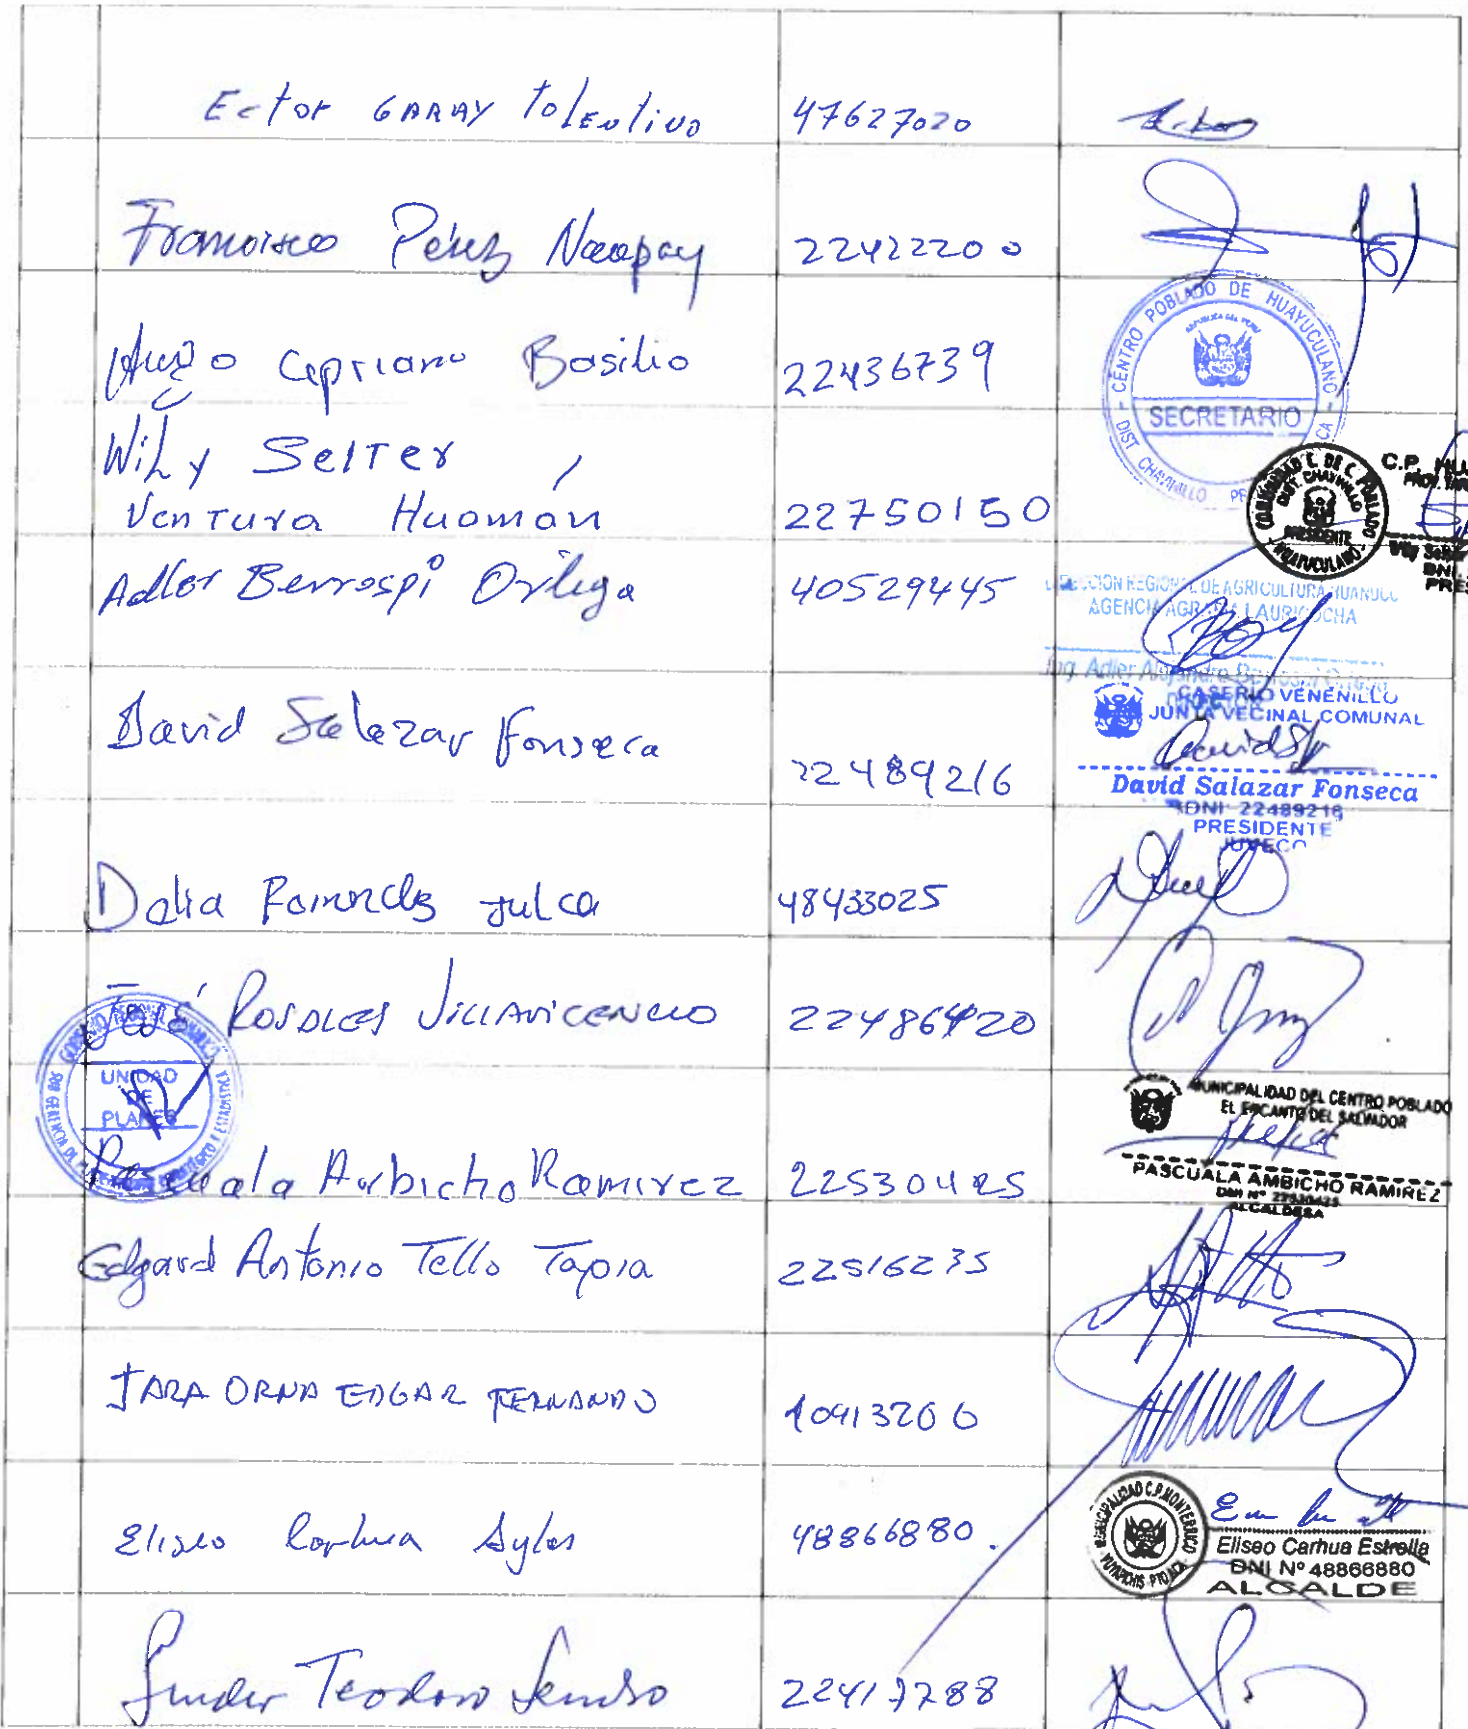 Ector GARAY tolentino 47627020
Francisco Pérez Naupay 22422200
Hugo Cipriano Basilio 22436739
CENTRO POBLADO DE HUAYUCULANO
REPUBLICA DEL PERU
SECRETARIO
DIST CHAVINILLO
Wily Selter
Ventura Huamán 22750150
COMUNIDAD C. DE C. POBLADO
DIST. CHAVINILLO
PRESIDENTE
HUAYUCULANO
C.P. HU
Adler Berrospi Ortega 40529445
DIRECCION REGIONAL DE AGRICULTURA HUANUCO
AGENCIA AGRARIA LAURICOCHA
Ing. Adler Alejandro Berrospi Ortega
David Salazar Fonseca 22489216
CASERIO VENENILLO
JUNTA VECINAL COMUNAL
David Salazar Fonseca
DNI 22489216
PRESIDENTE
JUVECO
Dalia julca 48433025
José Rosales Villavicencio 22486420
UNIDAD
DE
PLANES
Pascuala Ambicho Ramirez 22530425
MUNICIPALIDAD DEL CENTRO POBLADO
EL ENCANTO DEL SALVADOR
PASCUALA AMBICHO RAMIREZ
DNI Nº 22530425
ALCALDESA
Edgard Antonio Tello Tapia 22516235
JARA ORNA EDGAR FERNANDO 10413206
Eliseo Carhua 48866880.
MUNICIPALIDAD C.P. MONTERRICO
YUYAPICHIS PTO INCA
Eliseo Carhua Estrella
DNI Nº 48866880
ALCALDE
Teodoro 22417288